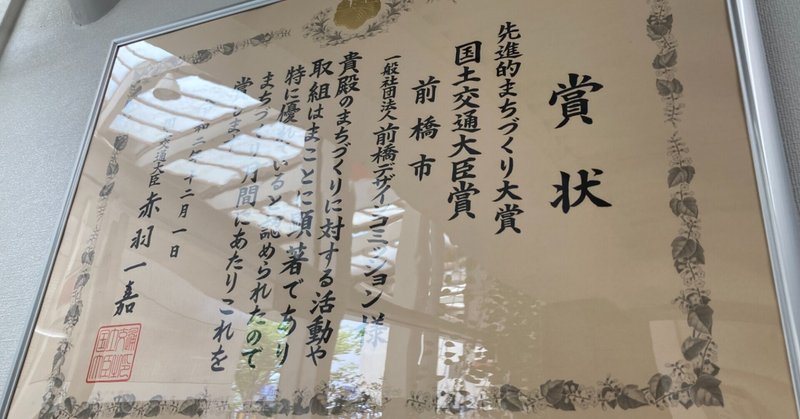 賞状
先進的まちづくり大賞
国土交通大臣賞
前橋市
一般社団法人前橋デザインコミッション様
貴殿のまちづくりに対する活動や
取組はまことに顕著であり
特に優れていると認められたので
まちづくり月間にあたりこれを
賞します
和二年十二月一日
交通大臣 赤羽一嘉